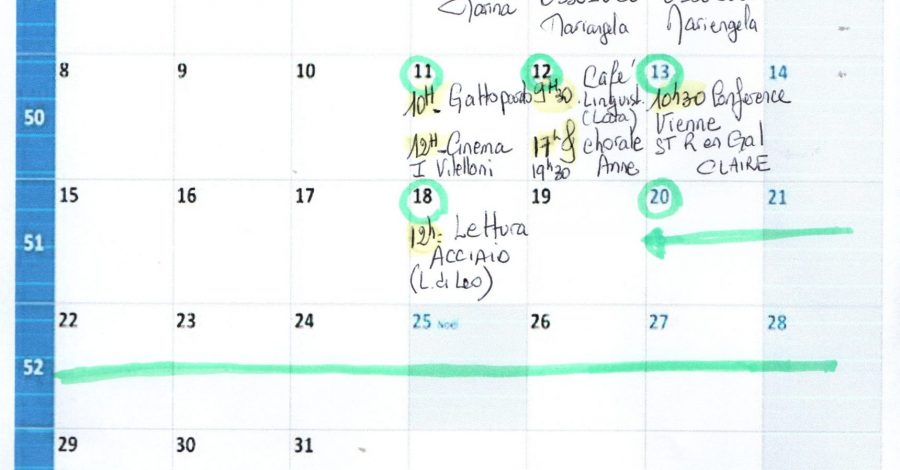 Marina
Mariangela
Mariengela
8 9 10 11 12 13 14
50
10H- Gattopardo
12H-Cinema
I Vitelloni
9H30 Café
Linguist.
(Lata)
17h chorale
19h30 Anne
10h30 Conference
Vienne
ST R en Gal
CLAIRE
15 16 17 18 19 20 21
51
12h- Lettura
ACCIAIO
(L. di Leo)
22 23 24 25 Noël 26 27 28
52
29 30 31